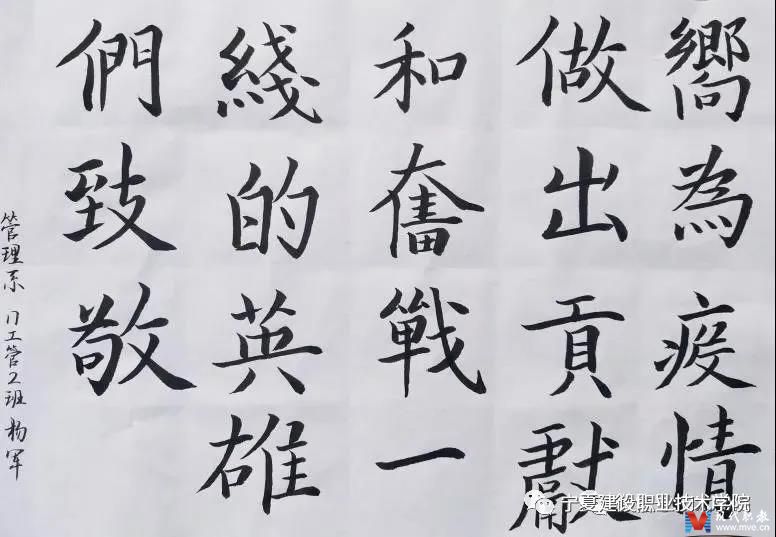 嚮為疫情
做出貢獻
和奮戰一
綫的英雄
們致敬
管理系 17工管2班 杨军
宁夏建设职业技术学院
现代职教
www.mve.cn